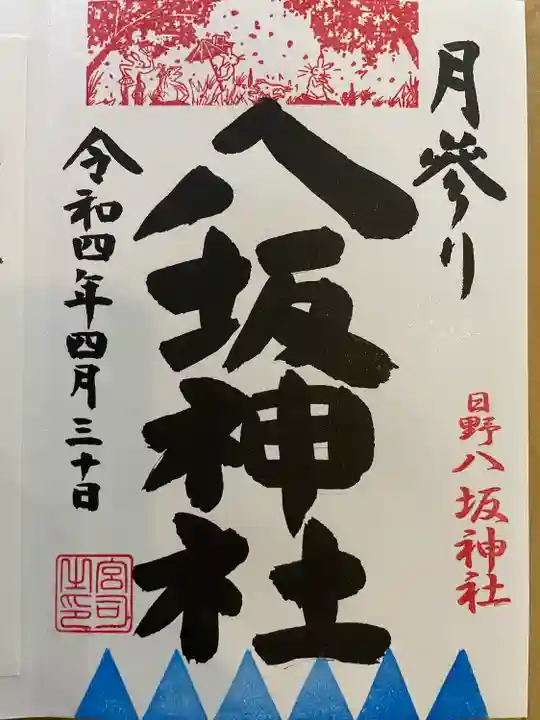 月参り
日野八坂神社
八坂神社
令和四年四月三十日
宮司之印